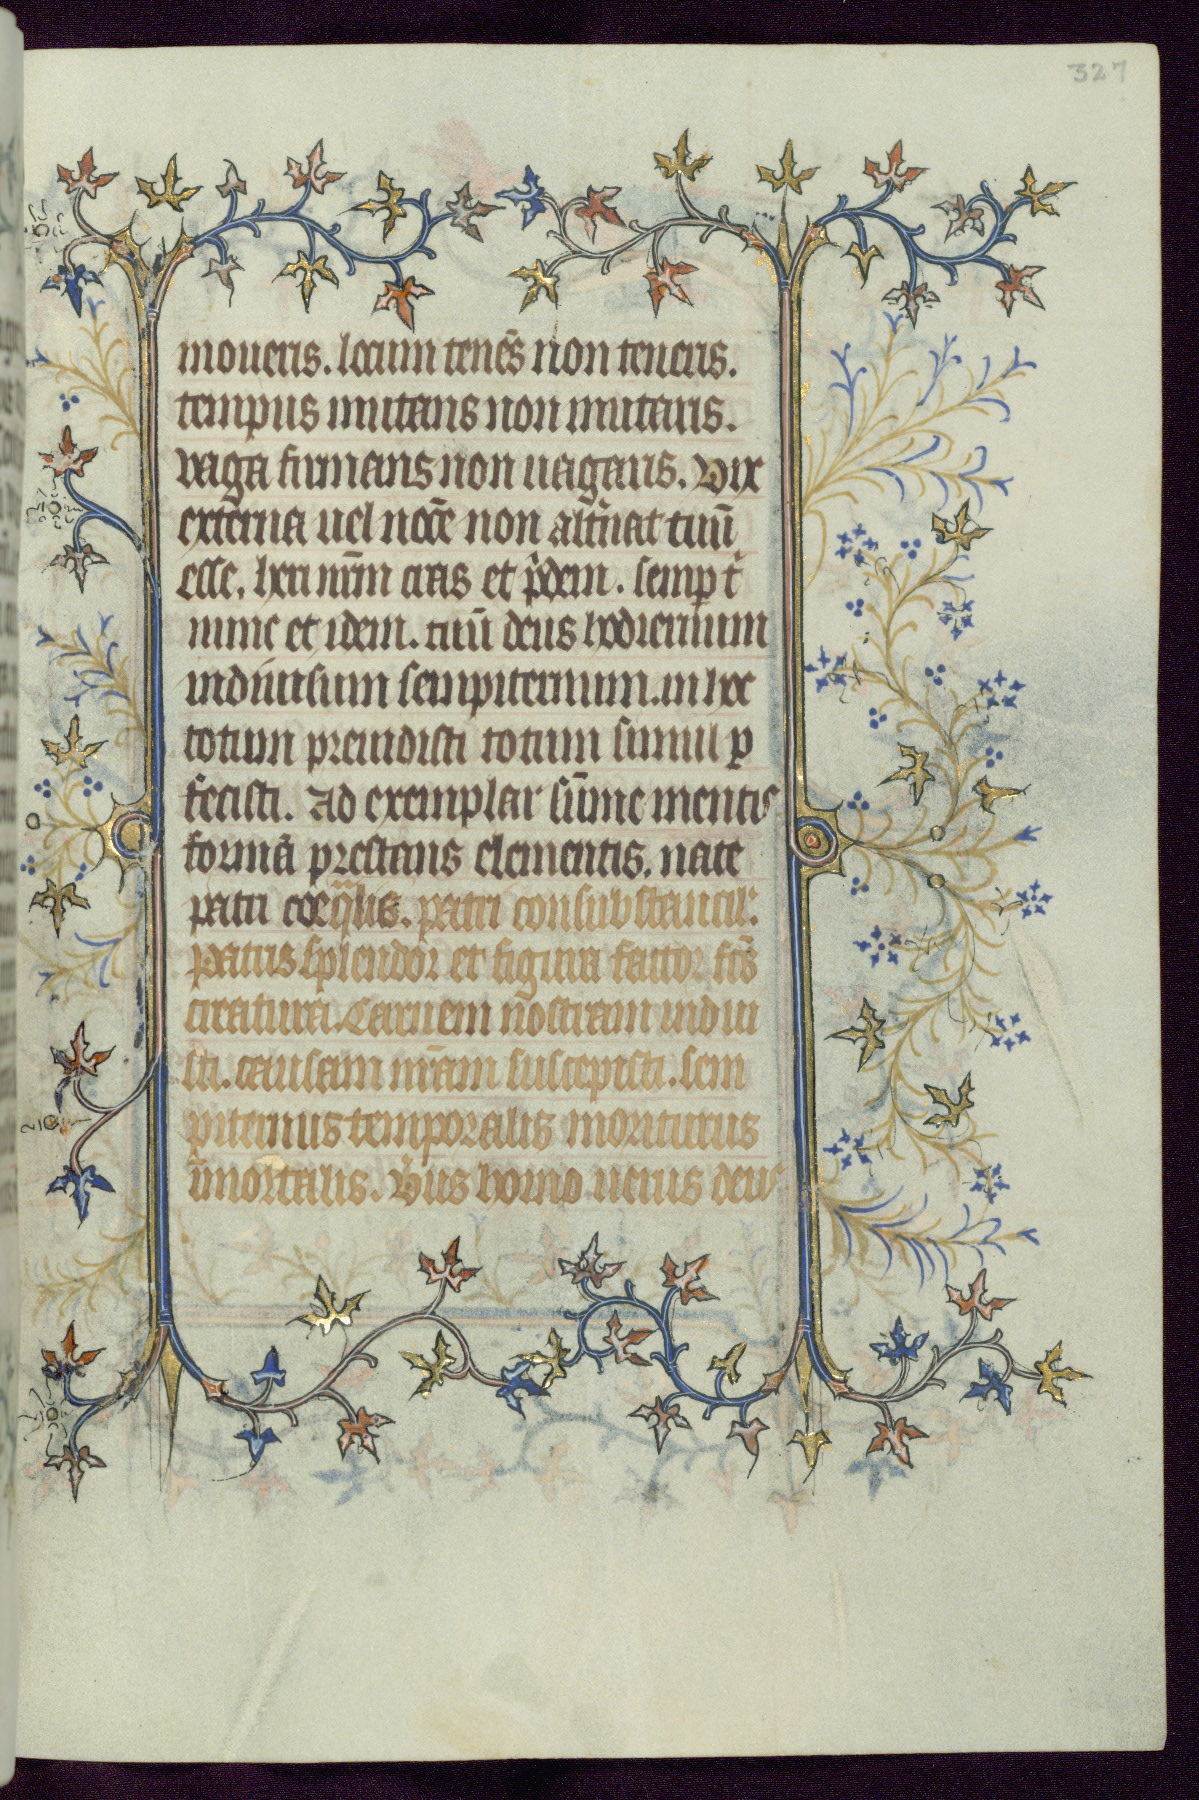 327
moueris. locum tenẽs non teneris.
tempus mutans non mutaris.
vaga firmans non uagaris. Vix
externa uel necẽ non alt̾nat tuũ
esse. heri nr̃m cras et p̾dem. semp t̾
nunc et idem. tuũ deus hodiernum
indiuisum sempiternum. in hoc
totum preuidisti totum simul p
fecisti. Ad exemplar sũme mentis
formã prestans elementis. nate
patri coeq̃lis. patri consubstancil̾.
patris splendor et figura factor fc̃s
creatura. Carnem nostram indui
sti. causam nr̃am suscepisti. sem
piternus temporalis moriturus
ĩmortalis. V̾us homo uerus deus